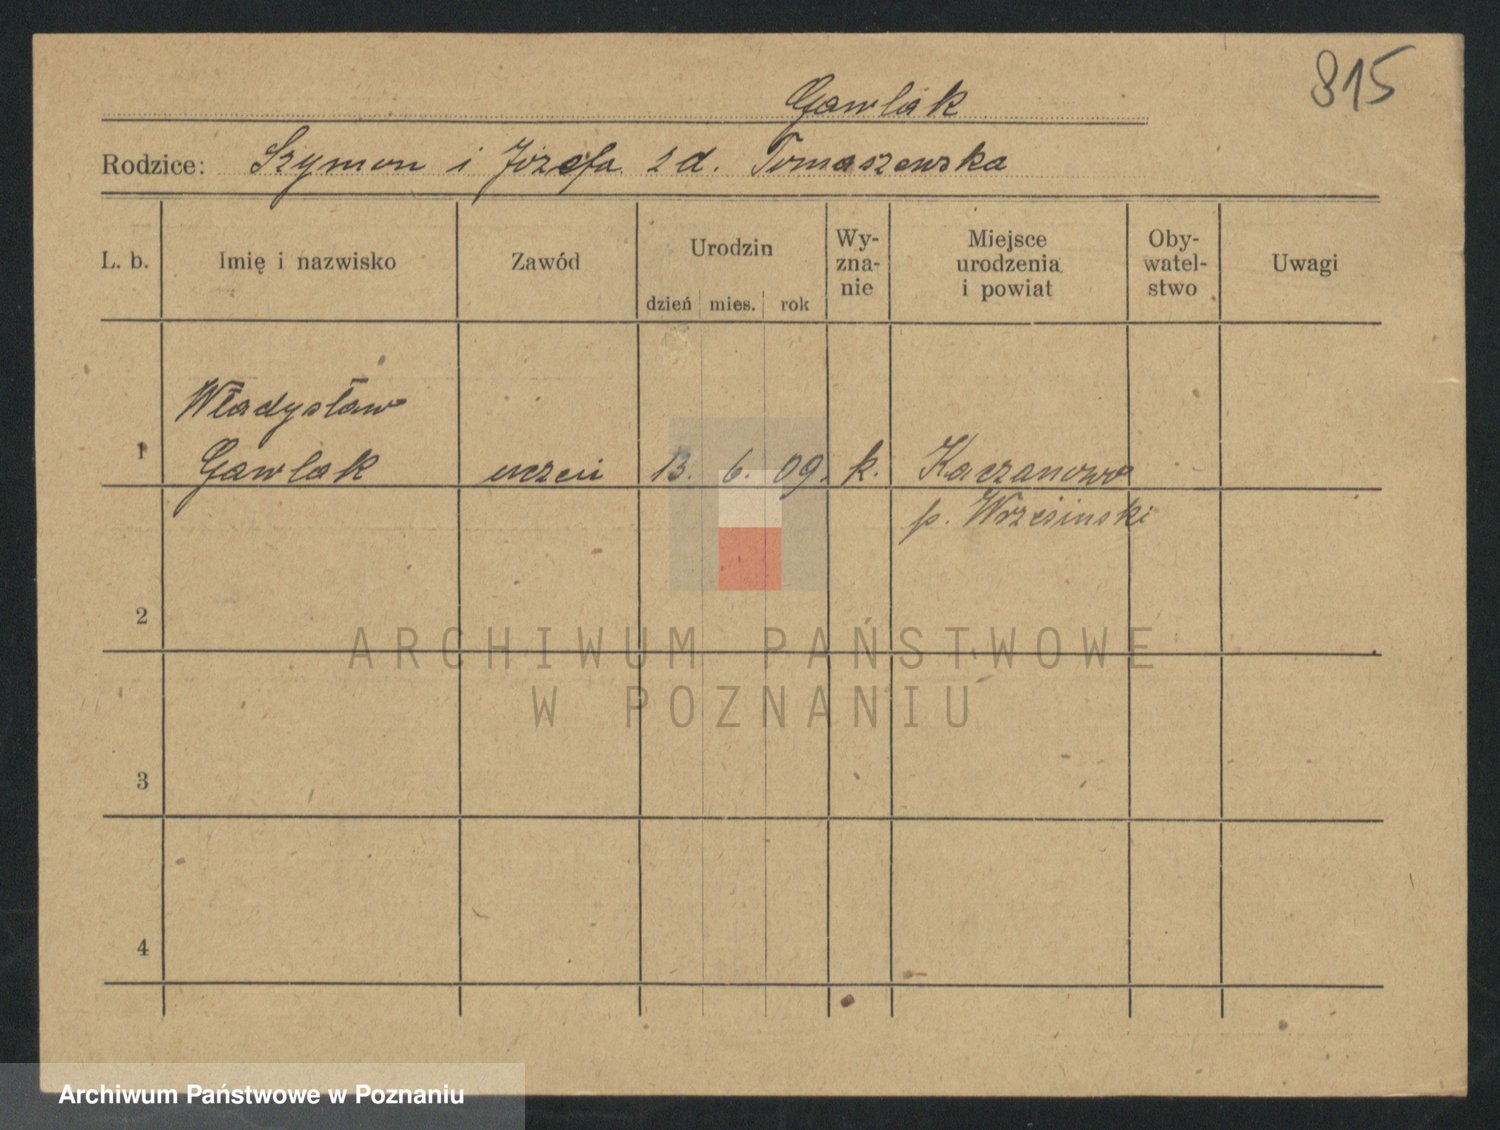 815
Gawlak
Rodzice: Szymon i Józefa z d. Tomaszewska
L. b. Imię i nazwisko Zawód Urodzin dzień mies. rok Wy-zna-nie Miejsce urodzenia i powiat Oby-watel-stwo Uwagi
Władysław
1 Gawlak uczeń 13. 6. 09. k. Kaczanowo
p. Wrzesiński
2
ARCHIWUM PAŃSTWOWE
W POZNANIU
3
4
Archiwum Państwowe w Poznaniu